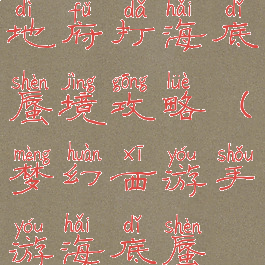 dì fǔ dǎ hǎi dǐ
地府打海底
shèn jìng gōng lüè
蜃境攻略（
mèng huàn xī yóu shǒu
梦幻西游手
yóu hǎi dǐ shèn
游海底蜃